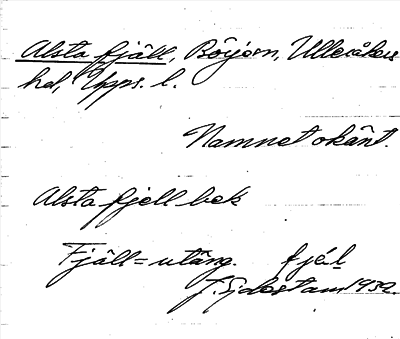 Alsta fjäll, Börje sn, Ulleråkers
hd, Upps. l.
Namnet okänt.
Alsta fjell bek
Fjäll = utäng. fjél
J. Sjöstam 1932.